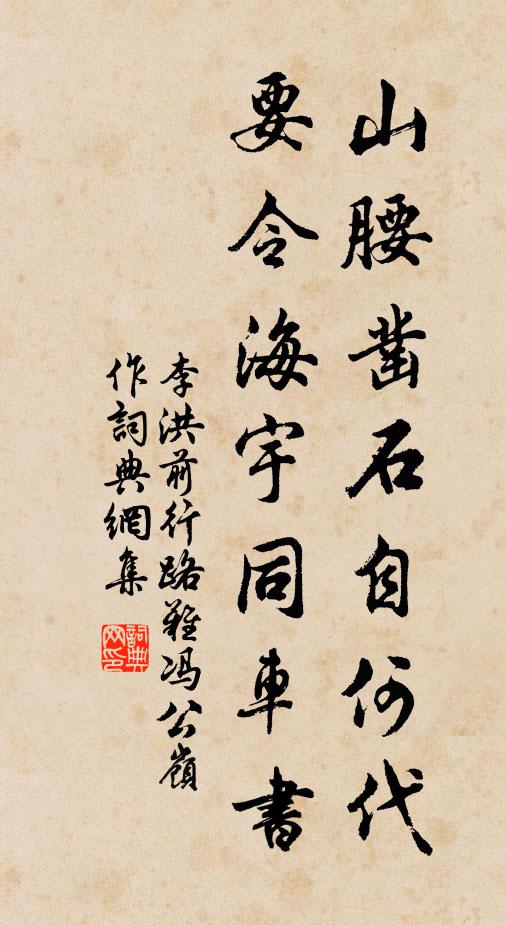 山腰凿石自何代
要令海宇同車書
李洪前行路難冯公嶺
作詞典網集
詞典
网印